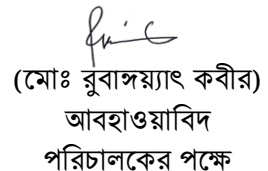 (মোঃ রুবাঈয়্যাৎ কবীর)
আবহাওয়াবিদ
পরিচালকের পক্ষে